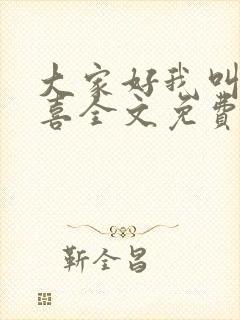 大家好我叫
喜全文免费
靳全昌